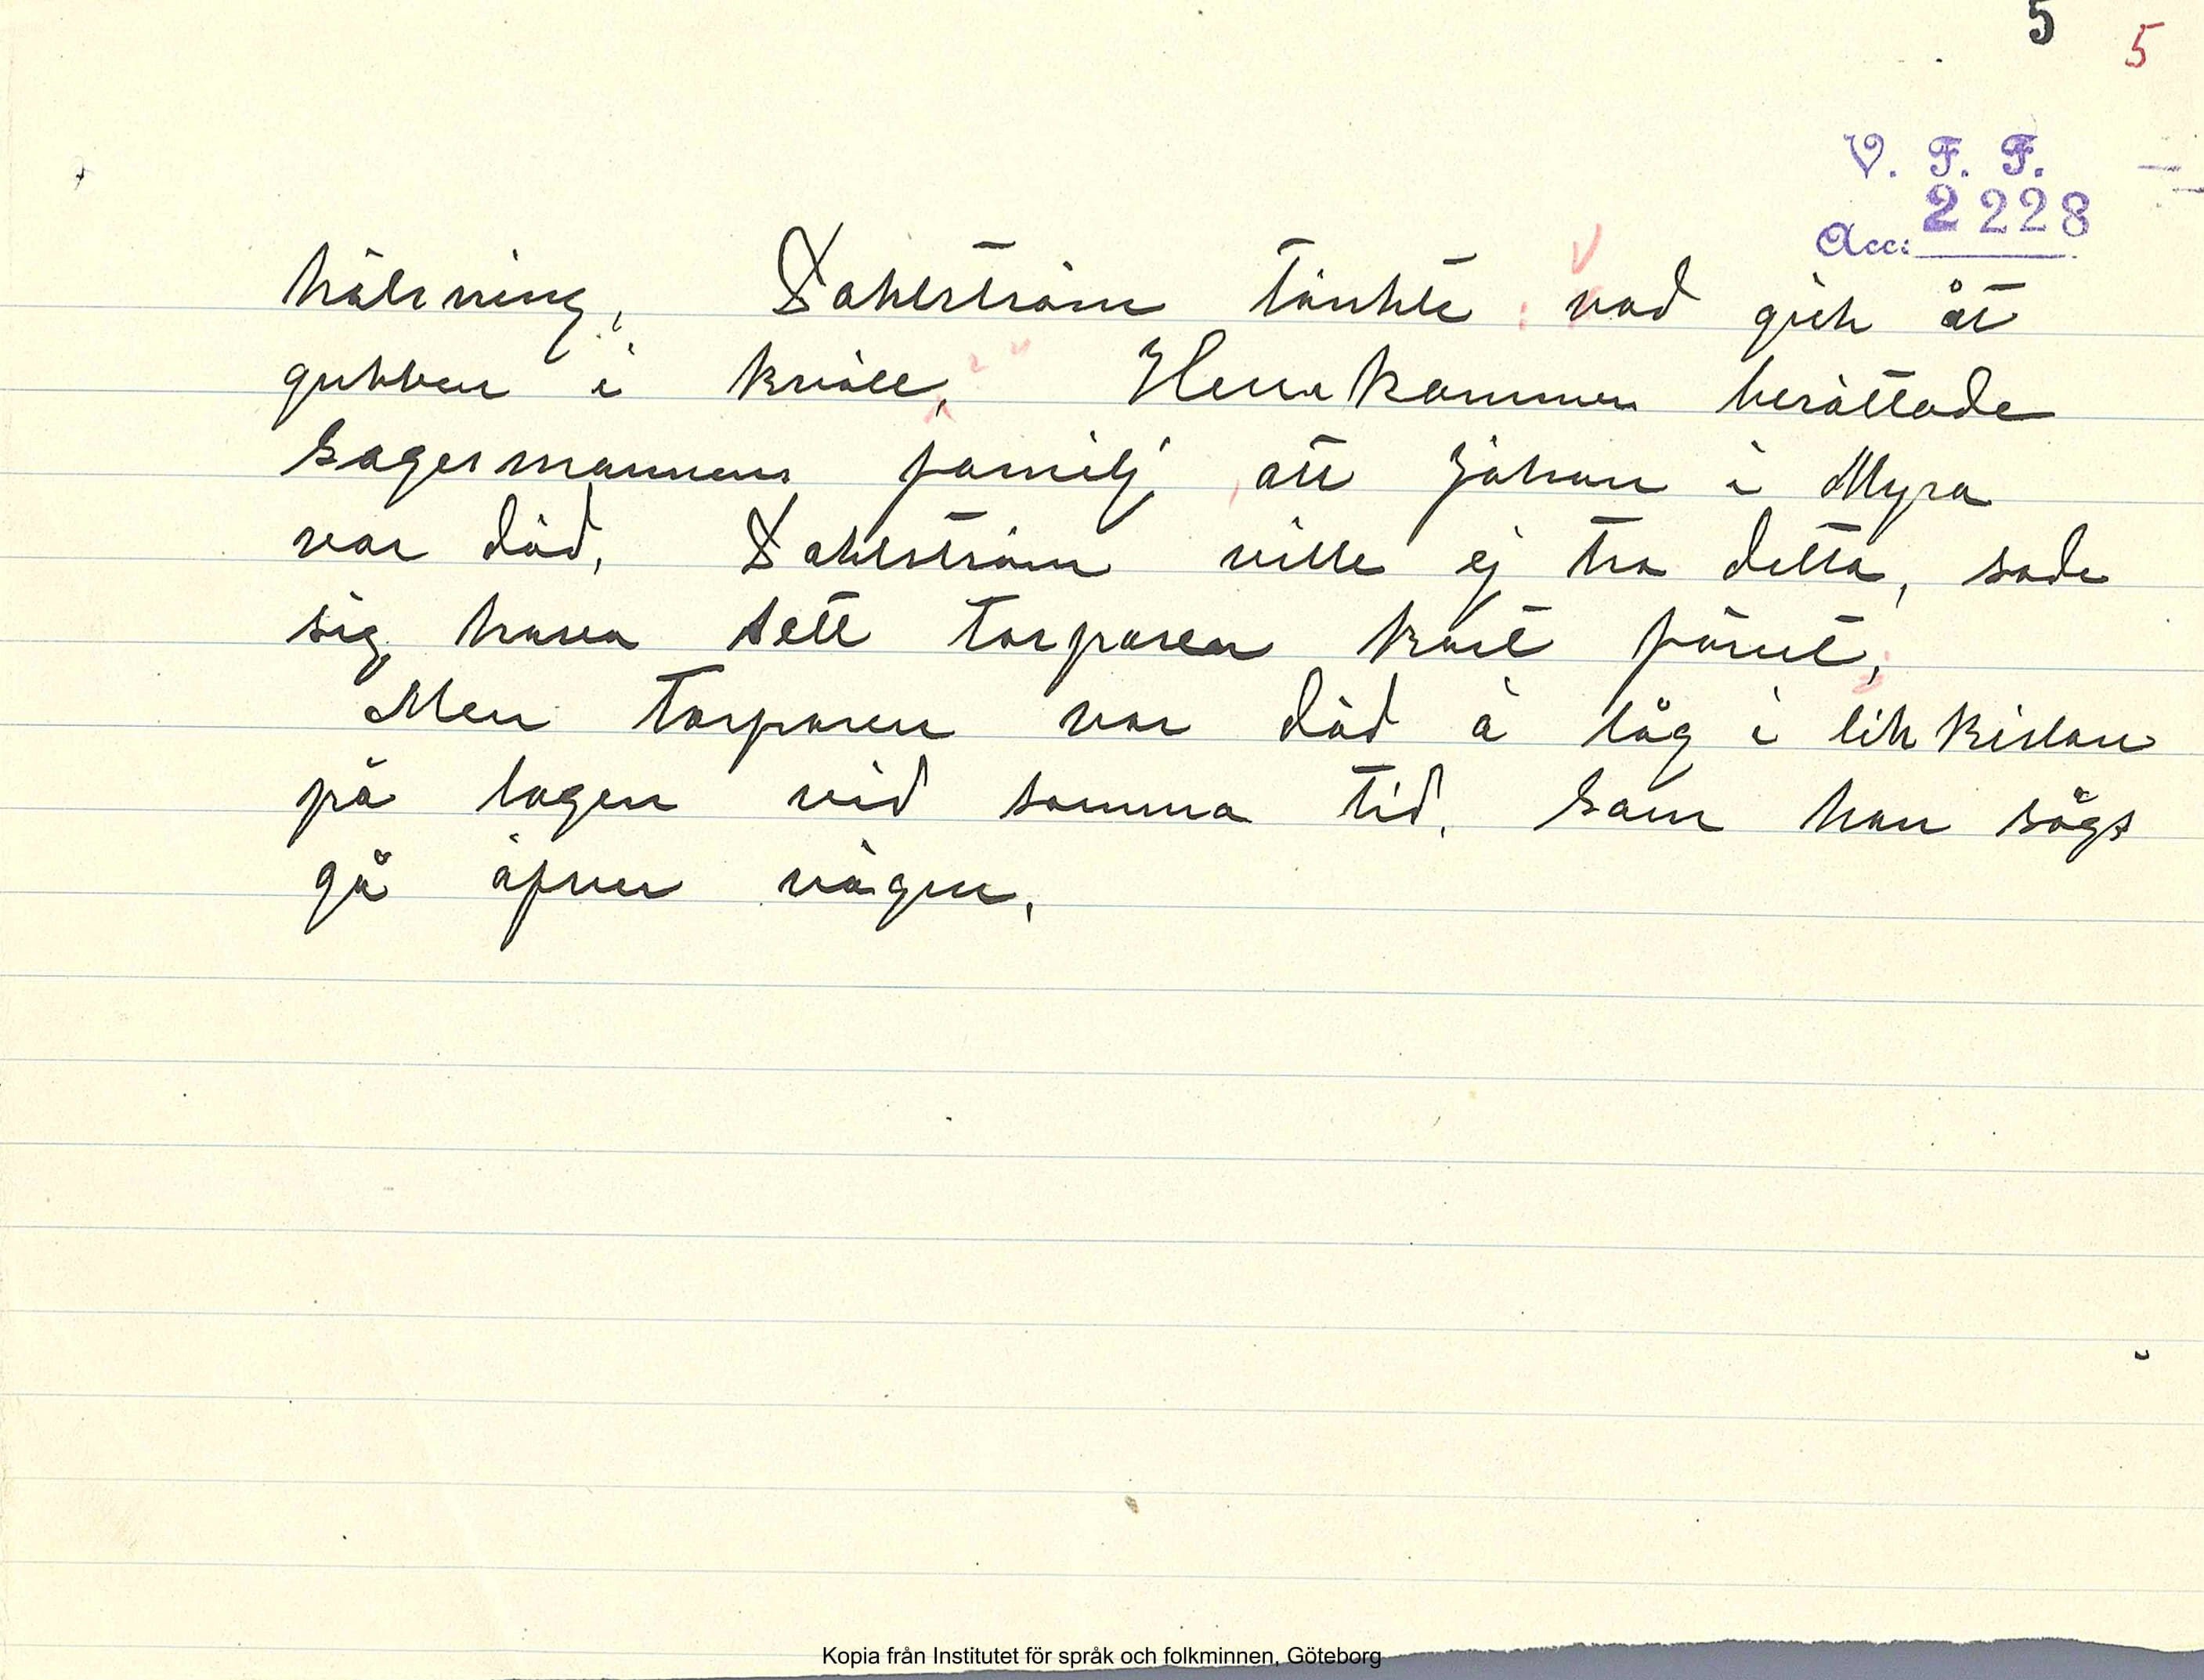 5 5
V. F. F.
Acc: 2228
hälsning. Dahlström tänkte: vad gick åt
gubben i kväll. Hemkommen berättade
sagesmannens familj, att Johan i Myra
var död. Dahlström ville ej tro detta, sade
sig hava sett torparen kort förut.
Men torparen var död å låg i likkistan
på logen vid samma tid. som han sågs
gå öfver vägen.
Kopia från Institutet för språk och folkminnen, Göteborg